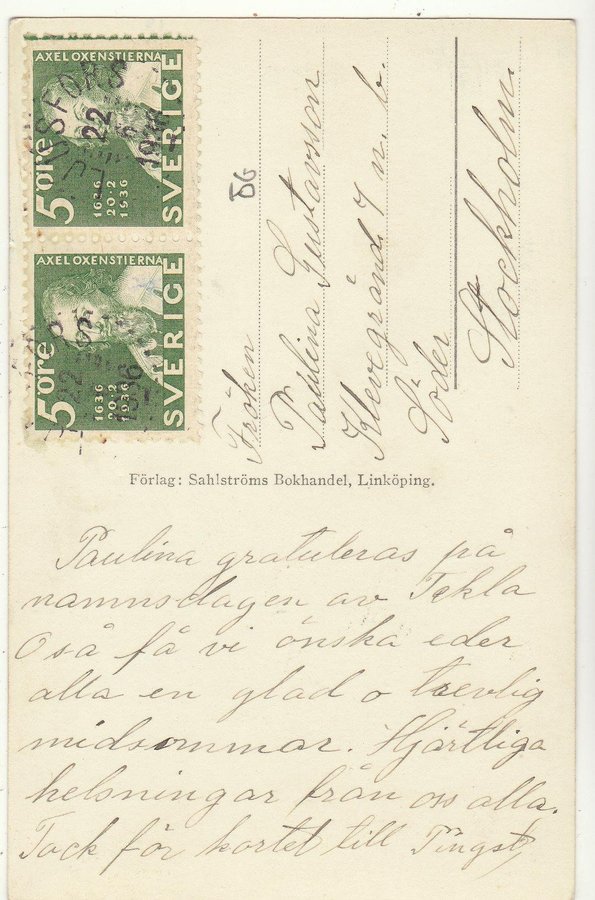 AXEL OXENSTIERNA
5 öre
1636
20·2
1936
SVERIGE
22
6
1936
AXEL OXENSTIERNA
5 öre
1636
20·2
1936
SVERIGE
22
1936
Fröken
Paulina Gustavsson
Klevegränd 7 n. b.
Söder
Stockholm.
Förlag: Sahlströms Bokhandel, Linköping.
Paulina gratuleras på
namnsdagen av Tekla
Oså få vi önska eder
alla en glad o trevlig
midsommar. Hjärtliga
helsningar från oss alla.
Tack för kortet till Pingst,